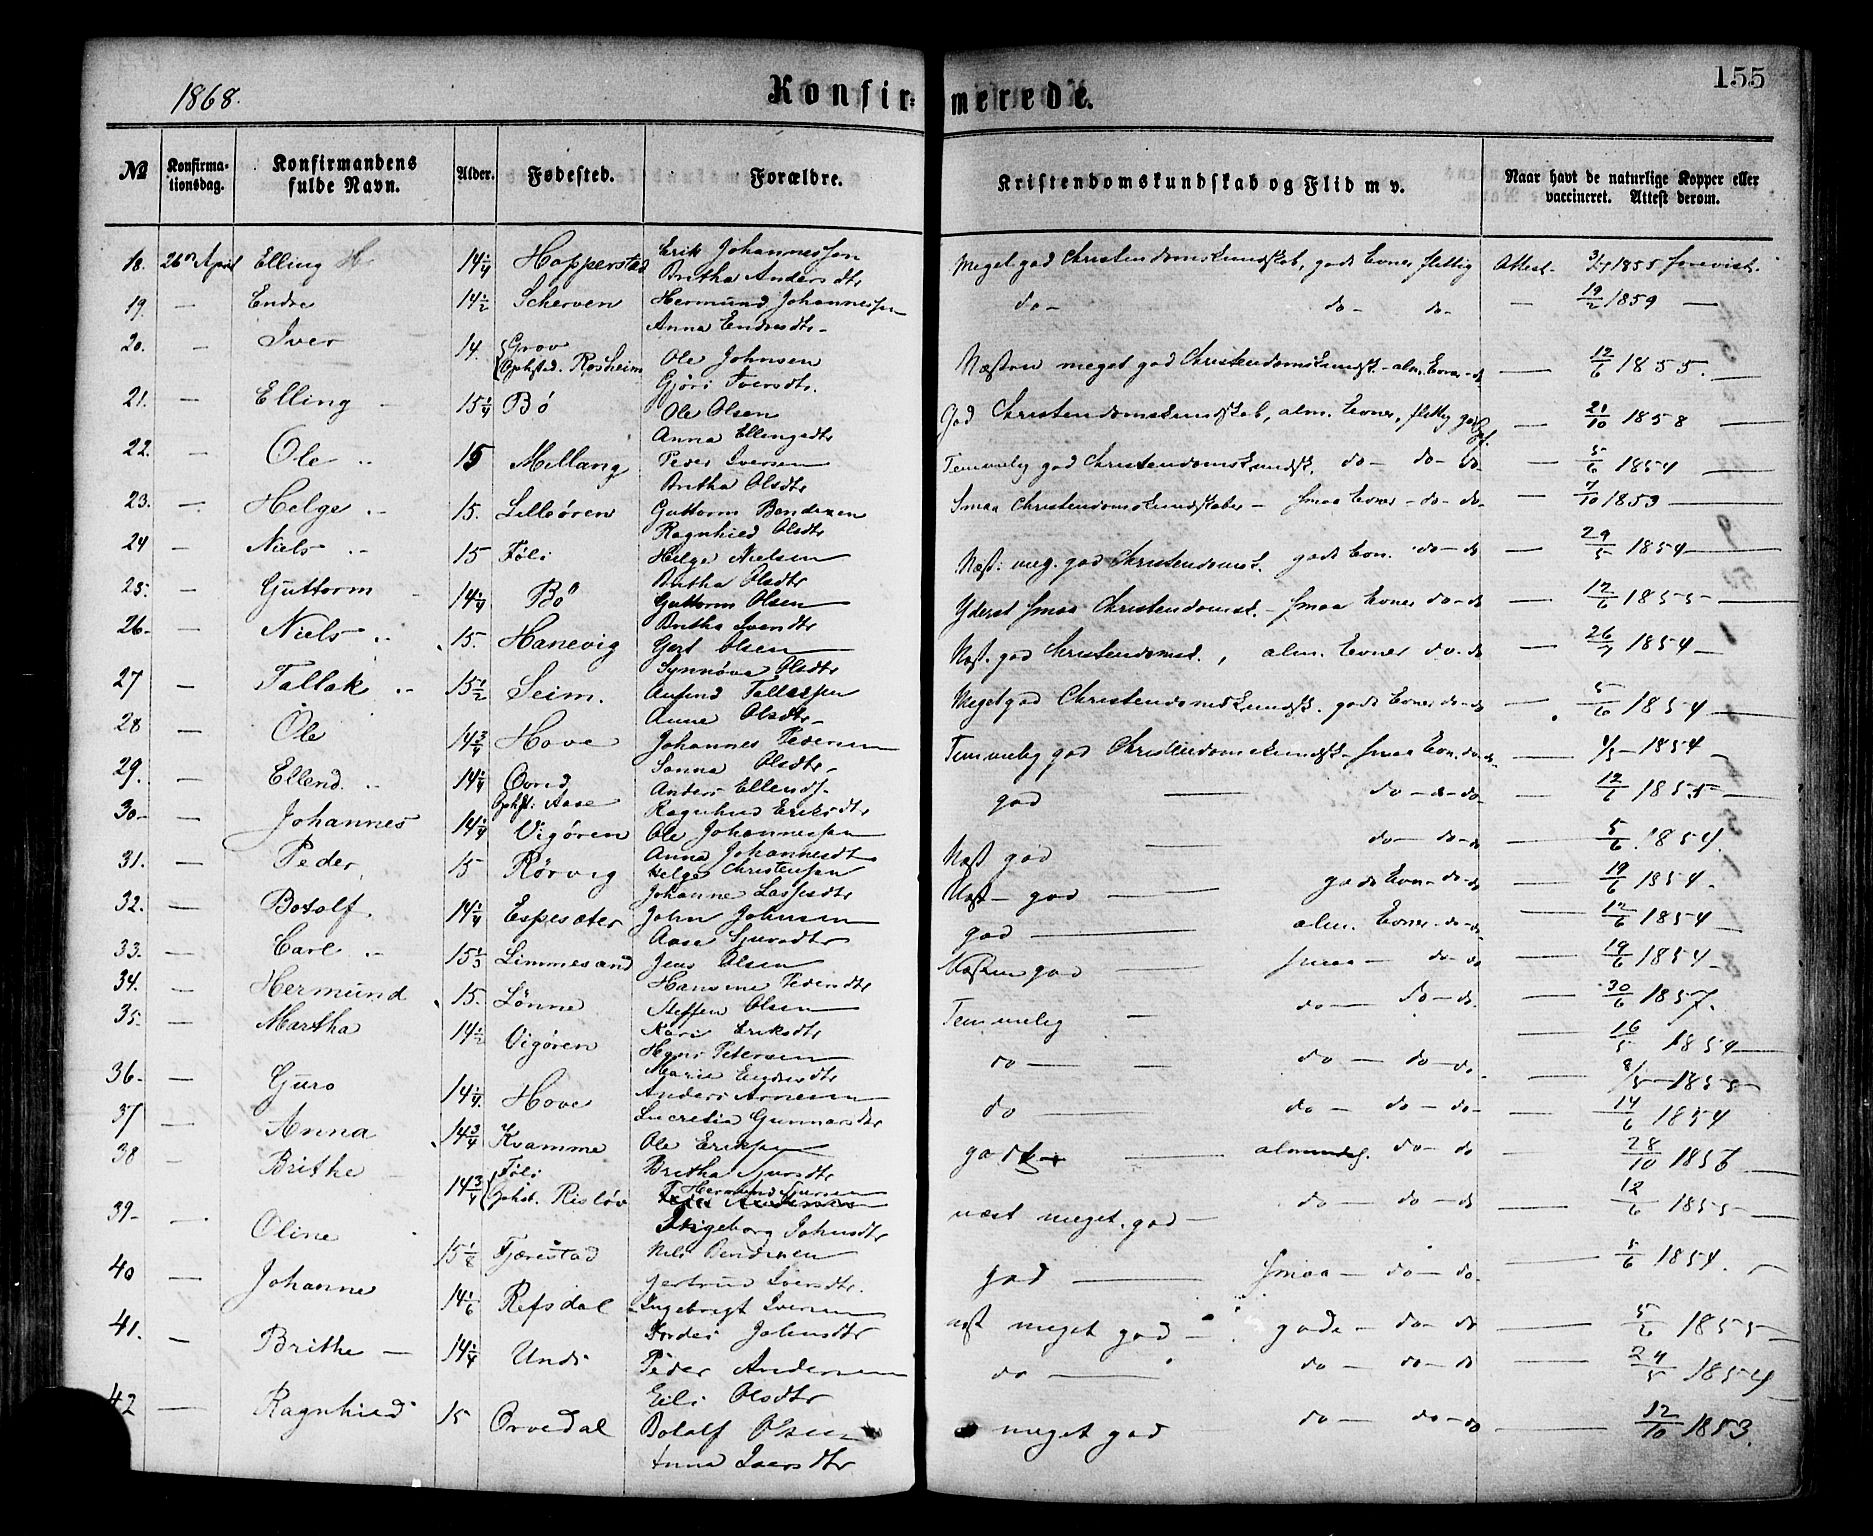 155
1868.
Konfirmerede.
№ Konfirmationsdag. Konfirmandens fulde Navn. Alder. Fødested. Forældre. Kristendomskundskab og Flid m v. Naar havt de naturlige Kopper eller vaccineret. Attest derom.
18. 26de April Elling H. 14 1/4 Hopperstad Erik Johannessen Meget god Christendomskundskab, gode Evner, flittig Attest. 1855 forevist.
Britha Andersdtr
19. — Endre 14 1/2 Scherven Hermund Johannessen do — do — do — — 19/2 1859 —
Anna Endresdtr
20. — Iver 14. Grov Ole Johnsen Næsten meget god Christendomskundsk. — alm. Evner — do — 12/6 1855.
Ophold. Røsheim Gjøri Iversdtr.
21. — Elling 15 1/4 Bö Ole Olsen God Christendomskundskab, alm. Evner, flittig — 21/10 1858 —
Anna Ellingsdtr
22. — Ole 15 Mellang Peder Iversen Temmelig god Christendomskundsk. do — do — do — 5/6 1854 —
Britha Olsdtr
23. — Helge 15. Lilleören Guttorm Bendixen Smaa Christendomskundskaber — smaa Evner — do — do — 7/10 1853 —
Ragnhild Olsdtr
24 — Niels 15 Föli Helge Nielsen Næst: meg. god Christendomsk. gode Evn. do — do — 29/5 1854 —
Britha Olsdtr
25. — Guttorm 14 1/4 Bö Guttorm Olsen Yderst smaa Christendomsk. — smaa Evner do — do — 12/6 1855 —
Britha Iversdtr
26 — Niels 15. Hanevig Olsen Næst. god Christendomsk., alm. Evner do. do — 26/7 1854 —
Synnöve Olsdtr
27 — Tallak 15 1/2 Seim. Tallaksen Meget god Christendomskundsk. gode Evner do — do — 5/6 1854 —
Anne Olsdtr
28 — Ole 14 3/4 Hove Johannes Pedersen Temmelig god Christendomskundsk — smaa Evn. do — do. — 1854 —
Sanna Olsdtr
29. — Ellend 14 1/4 Ovrid Anders Ellends. god — do — do — do — 12/6 1855 —
Ophst: Aase Ragnhild Eriksdtr
30 — Johannes 14 1/4 Vigören Ole Johannessen Næst god — do — do — do — 5/6 1854.
Anna Johannesdtr
31. — Peder 15 Rörvig Helge Christensen Næst — god — gode Evn — do — do — 19/6 1854.
Johanne Lassesdtr
32. — Botolf. 14 1/4 Espesæter John Johnsen god — alm. Evner — do — do — 12/6 1854 —
Aase Sjursdtr
33. — Carl 15 1/3 Limmesand Jens Olsen Næsten god — smaa — do — do — 19/6 1854 —
Hansine Pedersdtr
34. — Hermund 15. Lönne Steffen Olsen Temmelig — do — do — do. — 30/6 1857.
Kari Eriksdtr
35. — Martha 14 1/2 Vigören Hans Petersen do — — do — do — do. — 16/5 1854 —
Marie Endresdtr
36 — Guro 14 1/4 Hove Anders Arnesen do — do — do — do — — 8/5 — 1855 —
Lucretia Gunnarsdtr
37 — Anna 14 3/4 Kvamme Ole Eriksen god — almindel. do — do — 14/6 1854
Britha Sjursdtr
38 — Brithe 14 3/4 Föli Hermund Iversen næst meget god — do — do — do — 28/10 1856 —
Ophst. Rislöv Ingeborg Johnsdtr 12/6 1855 —
39 — Oline 15 1/8 Tjærestad Nils Bendixen god — smaa — do — do. — 5/6 1854.
Gertrud Iversdtr.
40 — Johanne 14 1/6 Refsdal Ingebrigt Iversen næst meget god — gode — do — do — 5/6 1855 —
Johnsdtr
41. — Brithe — 14 1/4 Undi Peder Andersen do — do — do — do — 24/5 1854
Eili Olsdtr
42 — Ragnhild 15 Orvedal Botolf Olsen meget god do — do — do — 12/10 1853.
Anna Iversdtr